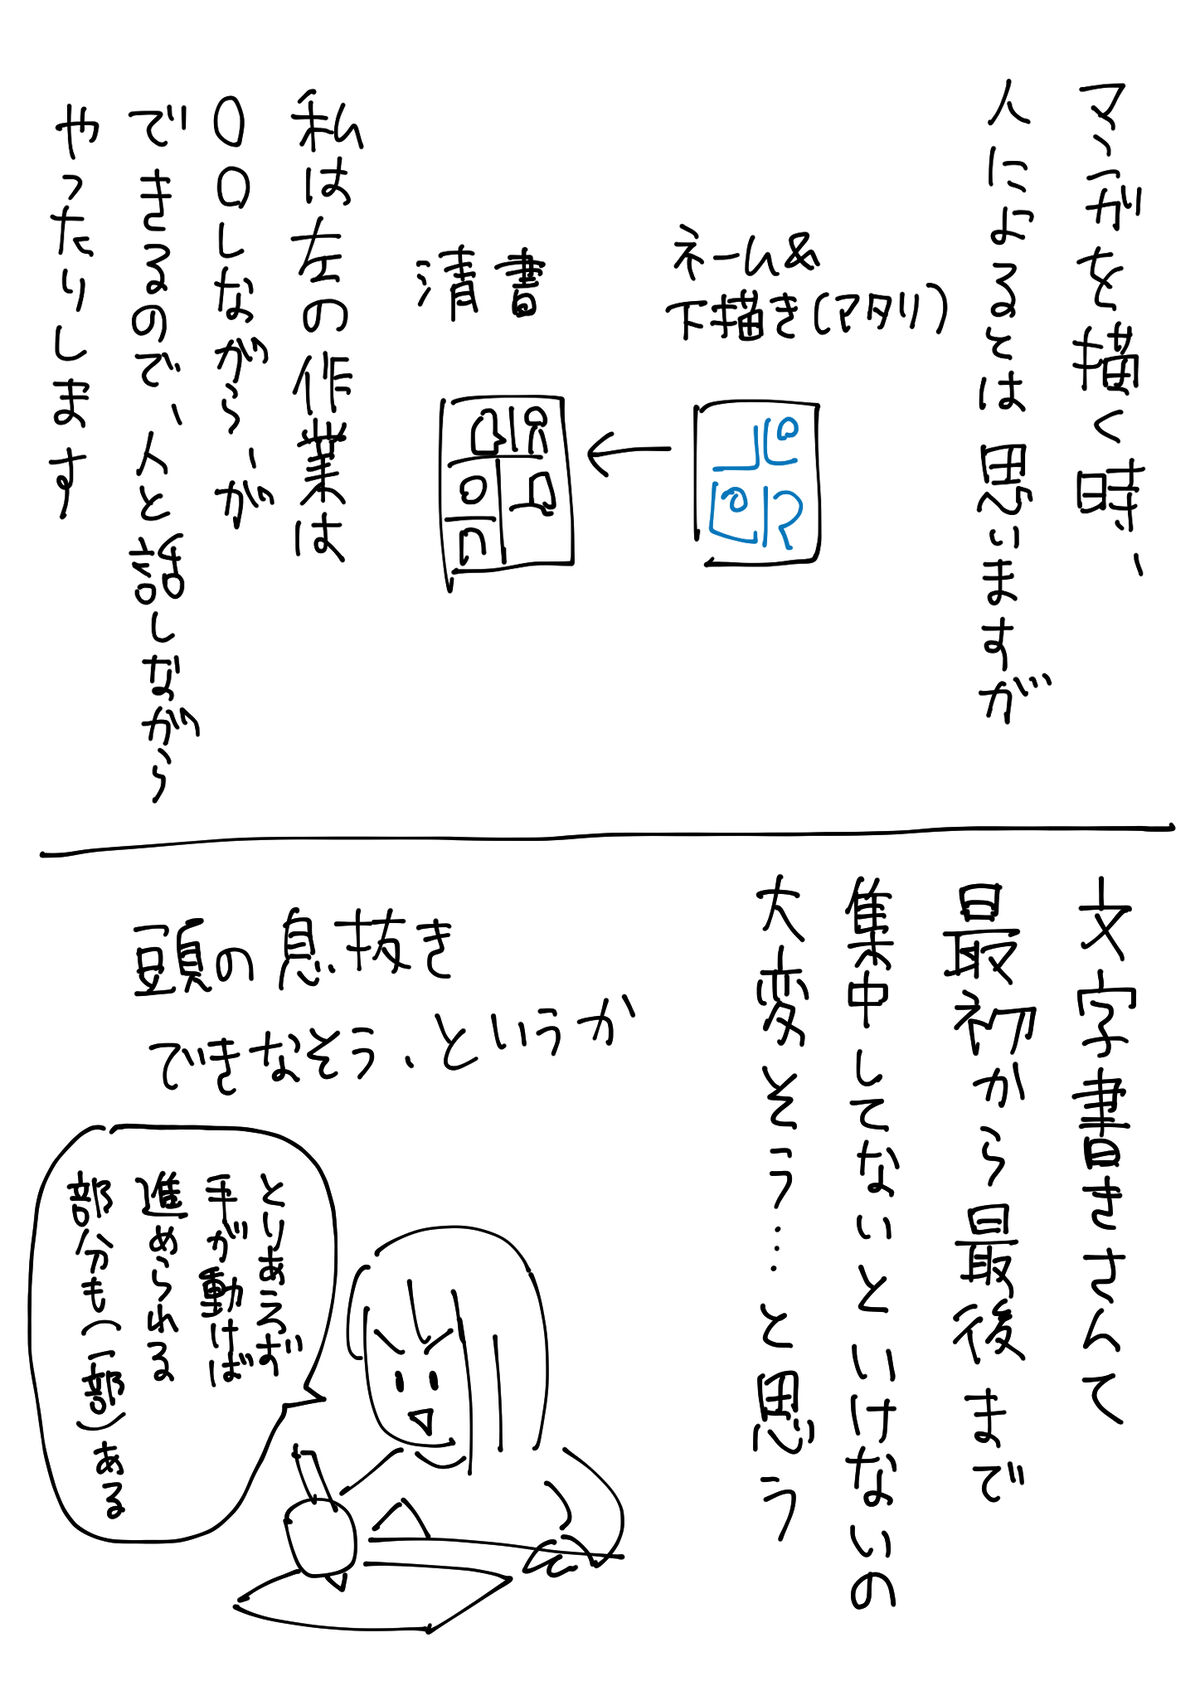 マンガを描く時、
人によるとは思いますが
ネーム&
下描き(アタリ)
清書
私は左の作業は
〇〇しながら、が
できるので、人と話しながら
やったりします
文字書きさんて
最初から最後まで
集中してないといけないの
大変そう…と思う
頭の息抜き
できなそう、というか
とりあえず
手が動けば
進められる
部分も(一部)ある